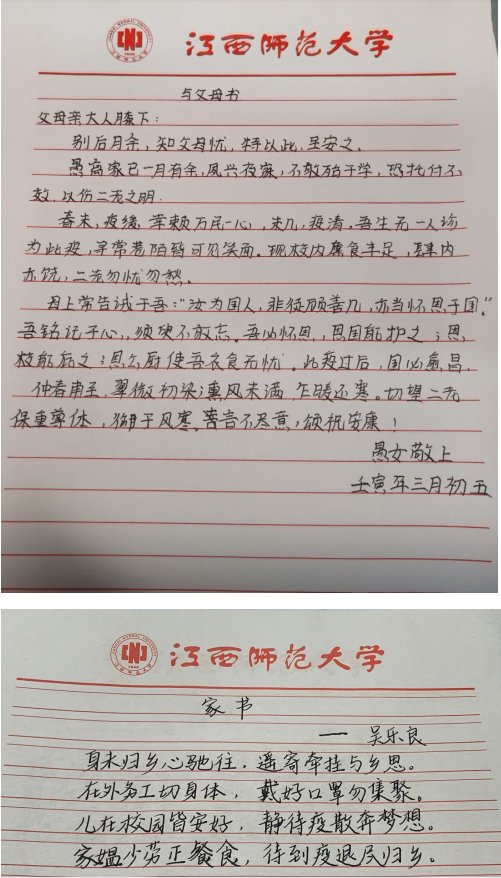 江西师范大学
与父母书
父母亲大人膝下：
别后月余，知父母忧，特以此，呈安之。
愚离家已一月有余，夙兴夜寐，不敢殆于学，恐托付不
效，以伤二老之明。
春末，疫缓，幸赖万民一心，未几，疫涛，吾生无一人诊
为此疫，寻常巷陌皆可见笑面。现校内腐食丰足，肆内
亦饶，二老勿忧勿愁。
母上常告诫于吾："汝为国人，非徒顾善几，亦当怀恩于国。"
吾铭记于心，须臾不敢忘。吾必怀恩，恩国能护之；恩
校能庇之；恩公厨使吾衣食无忧。此疫过后，国必愈昌。
仲春甫至，翠微初染；熏风未满，乍暖还寒。切望二老
保重尊体，御于风寒。书言不尽意，颂祝安康！
愚女敬上
壬寅年三月初五
江西师范大学
家书
—— 吴乐良
身未归乡心驰往，遥寄牵挂与乡思。
在外务工切身体，戴好口罩勿集聚。
儿在校园皆安好，静待疫散奔梦想。
家媪少劳正餐食，待到疫退尽归乡。